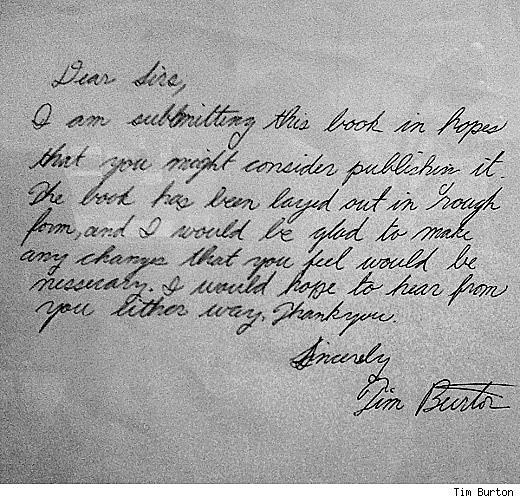 Dear Sirs,
I am submitting this book in hopes
that you might consider publishin it.
The book has been layed out in rough
form, and I would be glad to make
any changes that you feel would be
nessecary. I would hope to hear from
you either way. Thankyou.
Sincerely
Tim Burton
Tim Burton